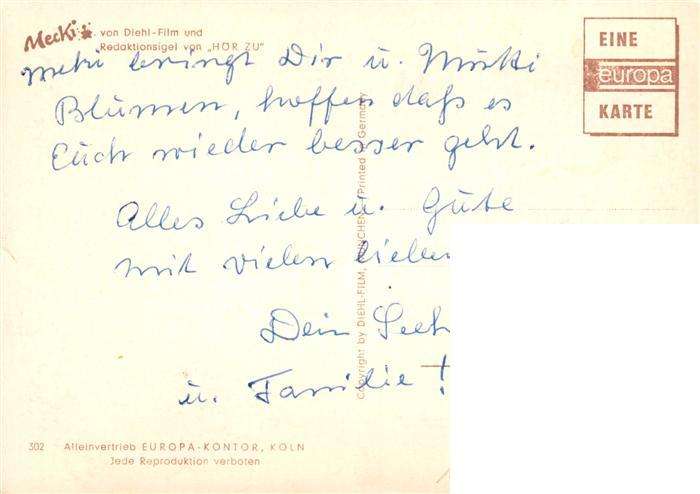 Mecki von Diehl-Film und
Redaktionsigel von „HÖR ZU"
EINE
europa
KARTE
Meki bringt Dir u. Mutti
Blumen, hoffen daß es
Euch wieder besser geht.
Alles Liebe u. Gute
mit vielen lieben
Dein
u. Familie!
Copyright by DIEHL-FILM, MÜNCHEN Printed Germany
302 Alleinvertrieb EUROPA-KONTOR, KÖLN
Jede Reproduktion verboten